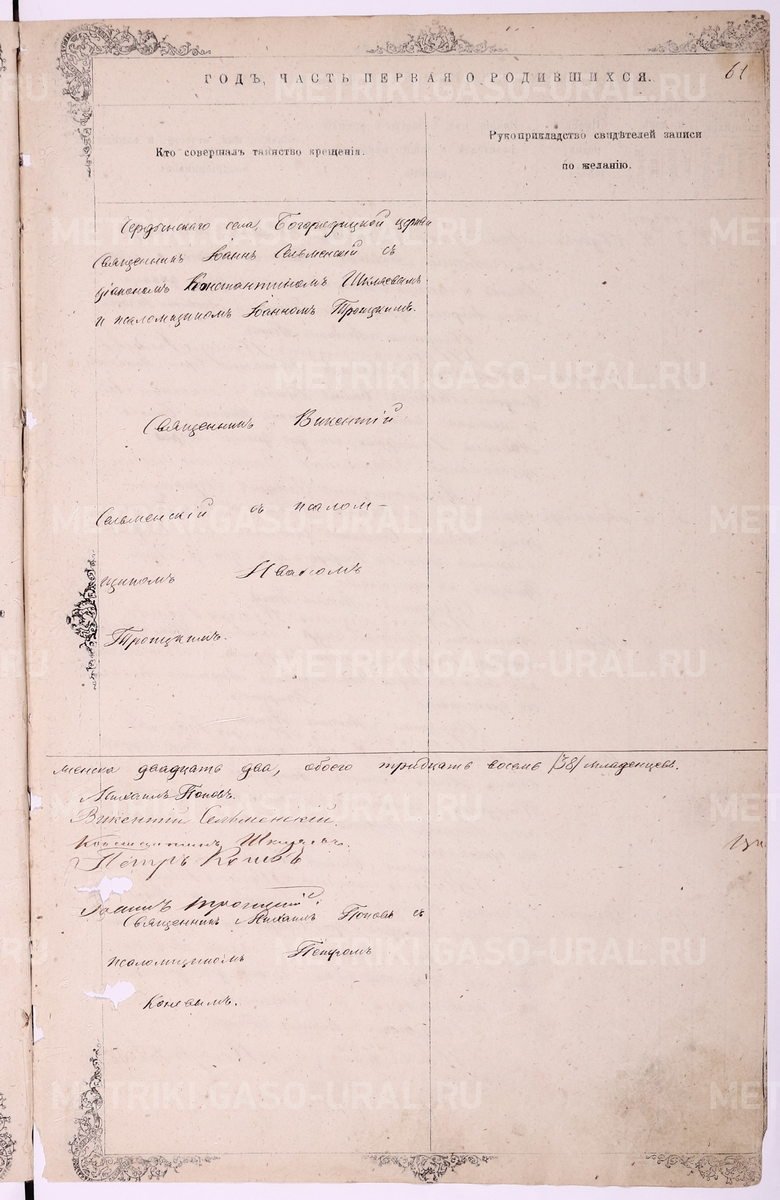 ГОДЪ, ЧАСТЬ ПЕРВАЯ О РОДИВШИХСЯ.
61
Кто совершалъ таинство крещенія.
Рукоприкладство свидѣтелей записи
по желанію.
села, Богородицкой церкви
Священникъ Іоаннъ Сельменскій съ
діакономъ Константиномъ
и псаломщикомъ Іоанномъ Троицкимъ.
Священникъ Викентій
Сельменскій съ псалом-
щикомъ Иваномъ
Троицкимъ.
женска двадцать два, обоего тридцать восемь /38/ младенцевъ.
Михаилъ Поповъ.
Викентій Сельменскій.
Константинъ
Петръ Коневъ
Іоаннъ Троицкій.
Священникъ Михаилъ Поповъ съ
псаломщикомъ Петромъ
Коневымъ.
METRIKI.GASO-URAL.RU